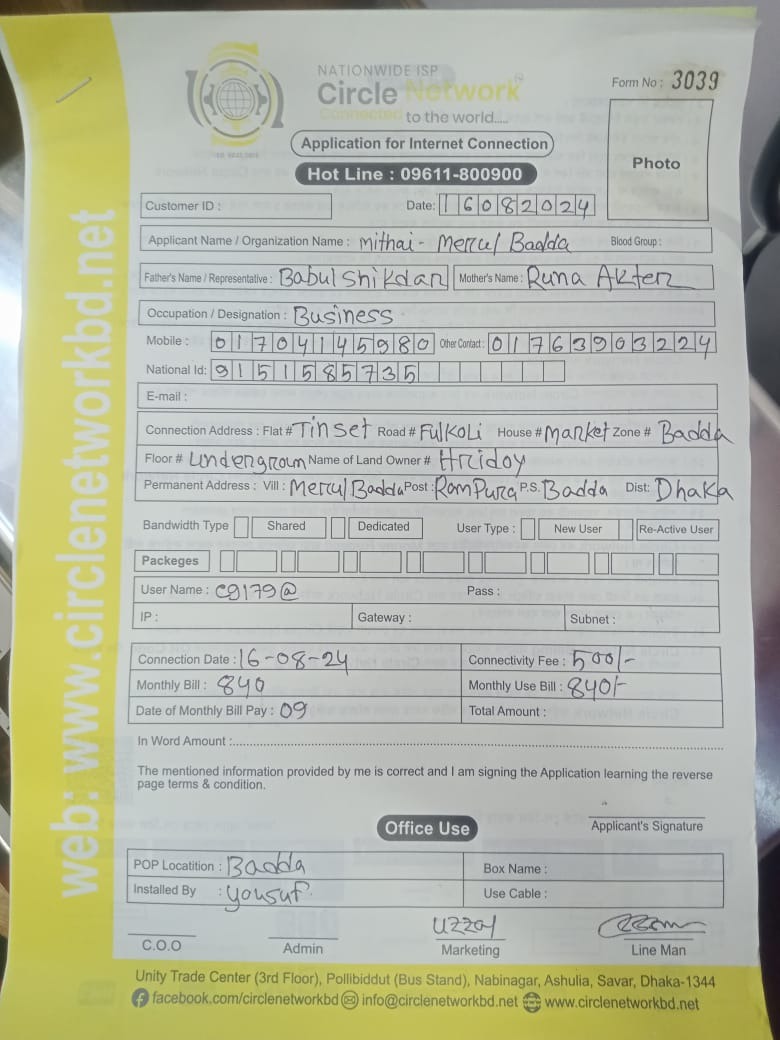 NATIONWIDE ISP
Circle Network
Connected to the world.....
Form No : 3039
Application for Internet Connection
Hot Line : 09611-800900
Photo
Customer ID :
Date: 16082024
Applicant Name / Organization Name : Mithai - Merul Badda Blood Group :
Father's Name / Representative : Babul Shikdar Mother's Name : Runa Akter
Occupation / Designation : Business
Mobile : 01704145980 Other Contact : 01763903224
National Id: 9151585735
E-mail :
Connection Address : Flat # Tinset Road # Fulkoli House # Market Zone # Badda
Floor # Undergroun Name of Land Owner # Hridoy
Permanent Address : Vill : Merul Badda Post : RamPura P.S. Badda Dist: Dhaka
Bandwidth Type Shared Dedicated User Type : New User Re-Active User
Packeges
User Name : c9179@ Pass :
IP : Gateway : Subnet :
Connection Date : 16-08-24 Connectivity Fee : 500/-
Monthly Bill : 840 Monthly Use Bill : 840/-
Date of Monthly Bill Pay : 09 Total Amount :
In Word Amount :
The mentioned information provided by me is correct and I am signing the Application learning the reverse
page terms & condition.
Applicant's Signature
Office Use
POP Locatition : Badda Box Name :
Installed By : Yousuf Use Cable :
Uzzal
C.O.O Admin Marketing Line Man
Unity Trade Center (3rd Floor), Pollibiddut (Bus Stand), Nabinagar, Ashulia, Savar, Dhaka-1344
facebook.com/circlenetworkbd info@circlenetworkbd.net www.circlenetworkbd.net
web: www.circlenetworkbd.net